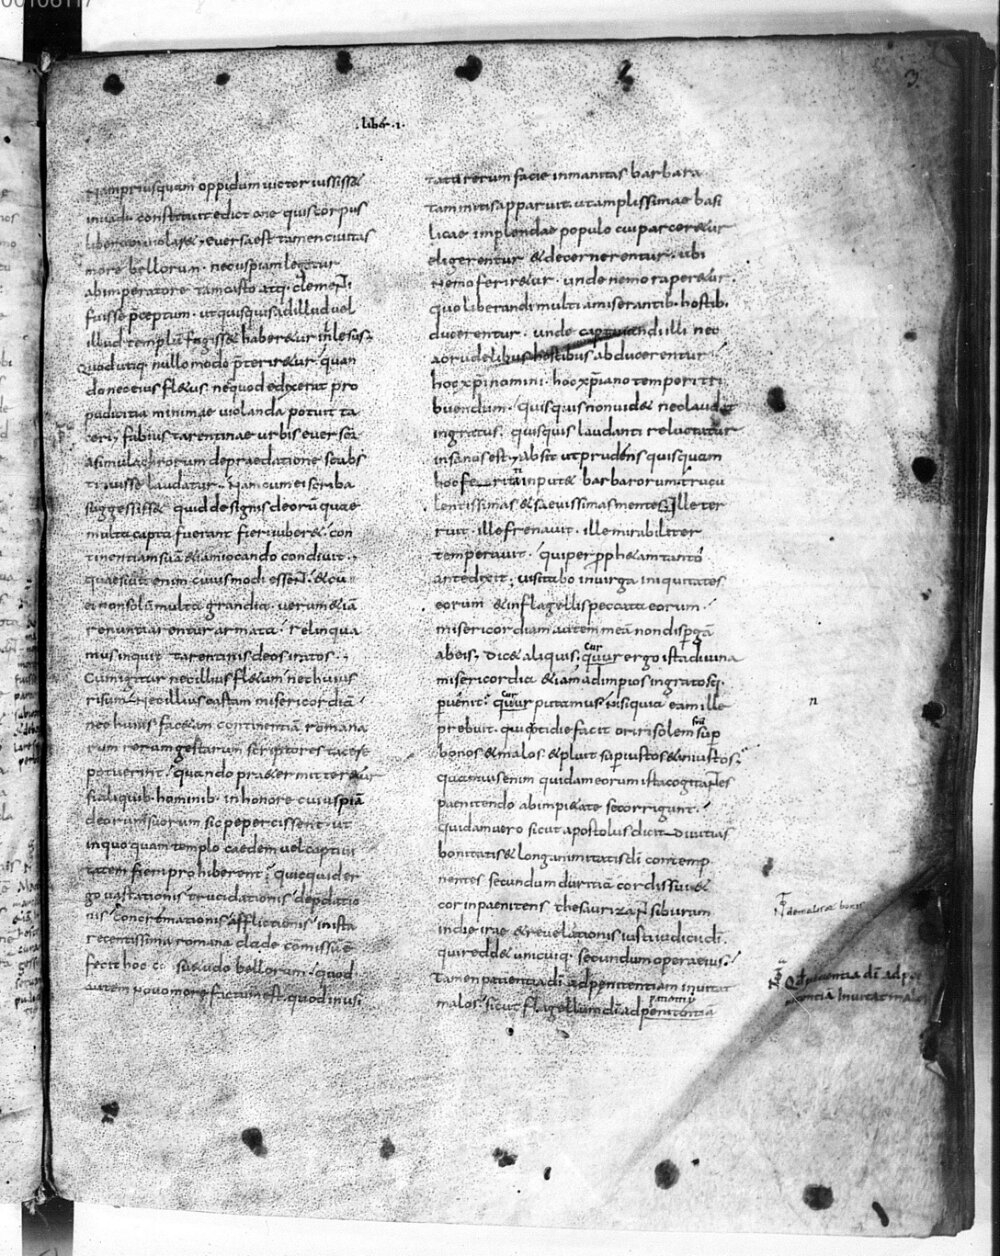 3
.liber .i.
Nam priusquam oppidum uictor iussisset
inuadi constituit edicto ne quis corpus
liberum uiolaret; euersa est tamen ciuitas
more bellorum. nec uspiam legitur
ab imperatore tam casto atq; clementi
fuisse pceptum. ut quisquis ad illud uel
illud templū fugisset haberetur inlesus.
Quod utiq; nullo modo pteriretur quan
do nec eius fletus. nequod edixerat pro
pudicitia minimae uiolanda potuit ta
ceri; fabius tarentinae urbis euersor
a simulachrorum depraedatione se abs
tinuisse laudatur. Nam cum ei scriba
suggessisset quid de signis deorū quae
multa capta fuerant fieri iuberet. con
tinentiam suā etiam iocando condiuit.
quaesiuit enim cuiusmodi essent. et cū
ei non solū multa grandia. uerum etiā
renuntiarentur armata. relinqua
mus inquit tarentinis deos iratos.
Cum igitur nec illius fletum nec huius
risum. Nec illius castam misericordiā
nec huius facetam continentiā romana
rum rerum gestarum scriptores tacere
potuerint. quando praetermitteretur
si aliquib. hominib. in honore cuiuspiā
deorum suorum sic pepercissent. ut
in quoquam templo caedem uel captiui
tatem fieri prohiberent; quicquid er
go uastationis trucidationis depdatio
nis concremationis afflictionis in ista
recentissima romana clade comissū ē
fecit hoc consuetudo bellorum. quod
autem nouo more factum est. quod inusi
tata rerum facie inmanitas barbara
tam mitis apparuit. ut amplissimae basi
licae implendae populo cui parceretur
eligerentur et decernerentur. ubi
nemo feriretur. unde nemo raperetur.
quo liberandi multi a miserantib. hostib.
ducerentur. unde captiuandi illi nec
a crudelibus hostibus abducerentur.
hoc xp̄i nomini. hoc xp̄iano tempori tri
buendum. quisquis non uidet nec laudat
ingratus. quisquis laudanti reluctatur
insanus est; Absit ut prudens quisquam
hoc feritati inputet barbarorum. trucu
lentissimas et saeuissimas mentes ille ter
ruit. ille frenauit. ille mirabiliter
temperauit. qui per pphetam tanto
ante dixit. uisitabo in uirga iniquitates
eorum et in flagellis peccata eorum.
misericordiam autem meā non dispgā
ab eis; Dicet aliquis. quur ergo ista diuina
cur
misericordia etiam ad impios ingratosq;
puenit. quur putamus nisi quia eam ille
cur
prebuit. qui cotidie facit oriri solem sup
bonos et malos. et pluit sup iustos et iniustos;
quamuis enim quidam eorum ista cogitantes
paenitendo ab impietate se corrigunt.
quidam uero sicut apostolus dicit diuitias
bonitatis et longanimitatis dī contemp
nentes secundum duritiā cordis sui et
cor inpaenitens thesaurizant sibi iram
in die irae et reuelationis iusti iudicii dī.
qui reddet unicuiq; secundum opera eius.
Tamen patientia dī ad penitentiam inuitat
malos. sicut flagellum dī ad penitentiā
n
de malis et bonis
Qd pacientia dī ad pe